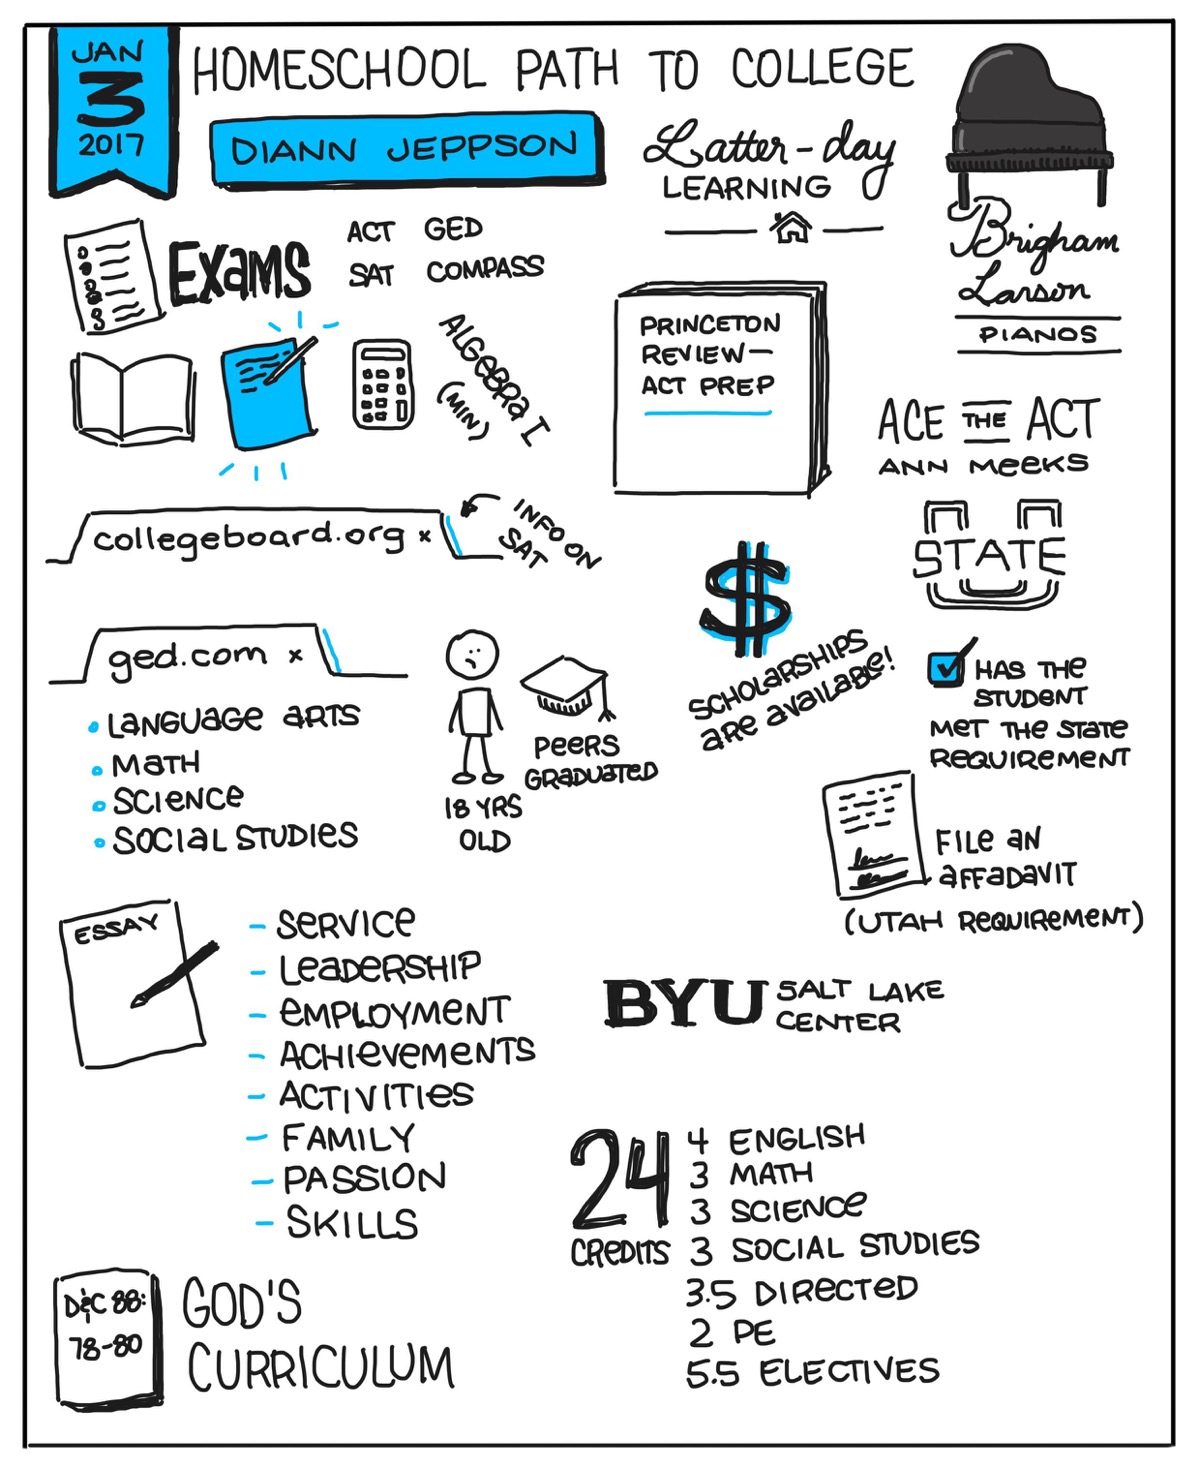 JAN
3
2017
HOMESCHOOL PATH TO COLLEGE
DIANN JEPPSON
Latter-day
LEARNING
Brigham
Larson
PIANOS
EXAMS
ACT GED
SAT COMPASS
ALGEBRA I
(MIN)
PRINCETON
REVIEW—
ACT PREP
ACE THE ACT
ANN MEEKS
collegeboard.org x
INFO ON
SAT
STATE
ged.com x
LANGUAGE ARTS
MATH
SCIENCE
SOCIAL STUDIES
18 YRS
OLD
PEERS
GRADUATED
$
SCHOLARSHIPS
ARE AVAILABLE!
HAS THE
STUDENT
MET THE STATE
REQUIREMENT
FILE AN
AFFADAVIT
(UTAH REQUIREMENT)
ESSAY
- SERVICE
- LEADERSHIP
- EMPLOYMENT
- ACHIEVEMENTS
- ACTIVITIES
- FAMILY
- PASSION
- SKILLS
BYU SALT LAKE
CENTER
24
CREDITS
4 ENGLISH
3 MATH
3 SCIENCE
3 SOCIAL STUDIES
3.5 DIRECTED
2 PE
5.5 ELECTIVES
D&C 88:
78-80
GOD'S
CURRICULUM